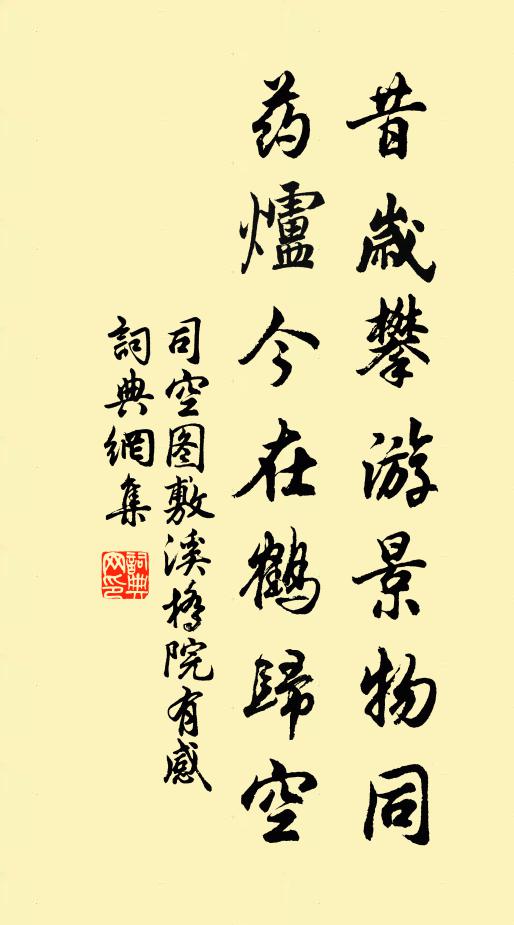 昔歲攀游景物同
药爐今在鶴歸空
司空图敷溪橋院有感
詞典網集
詞典網印